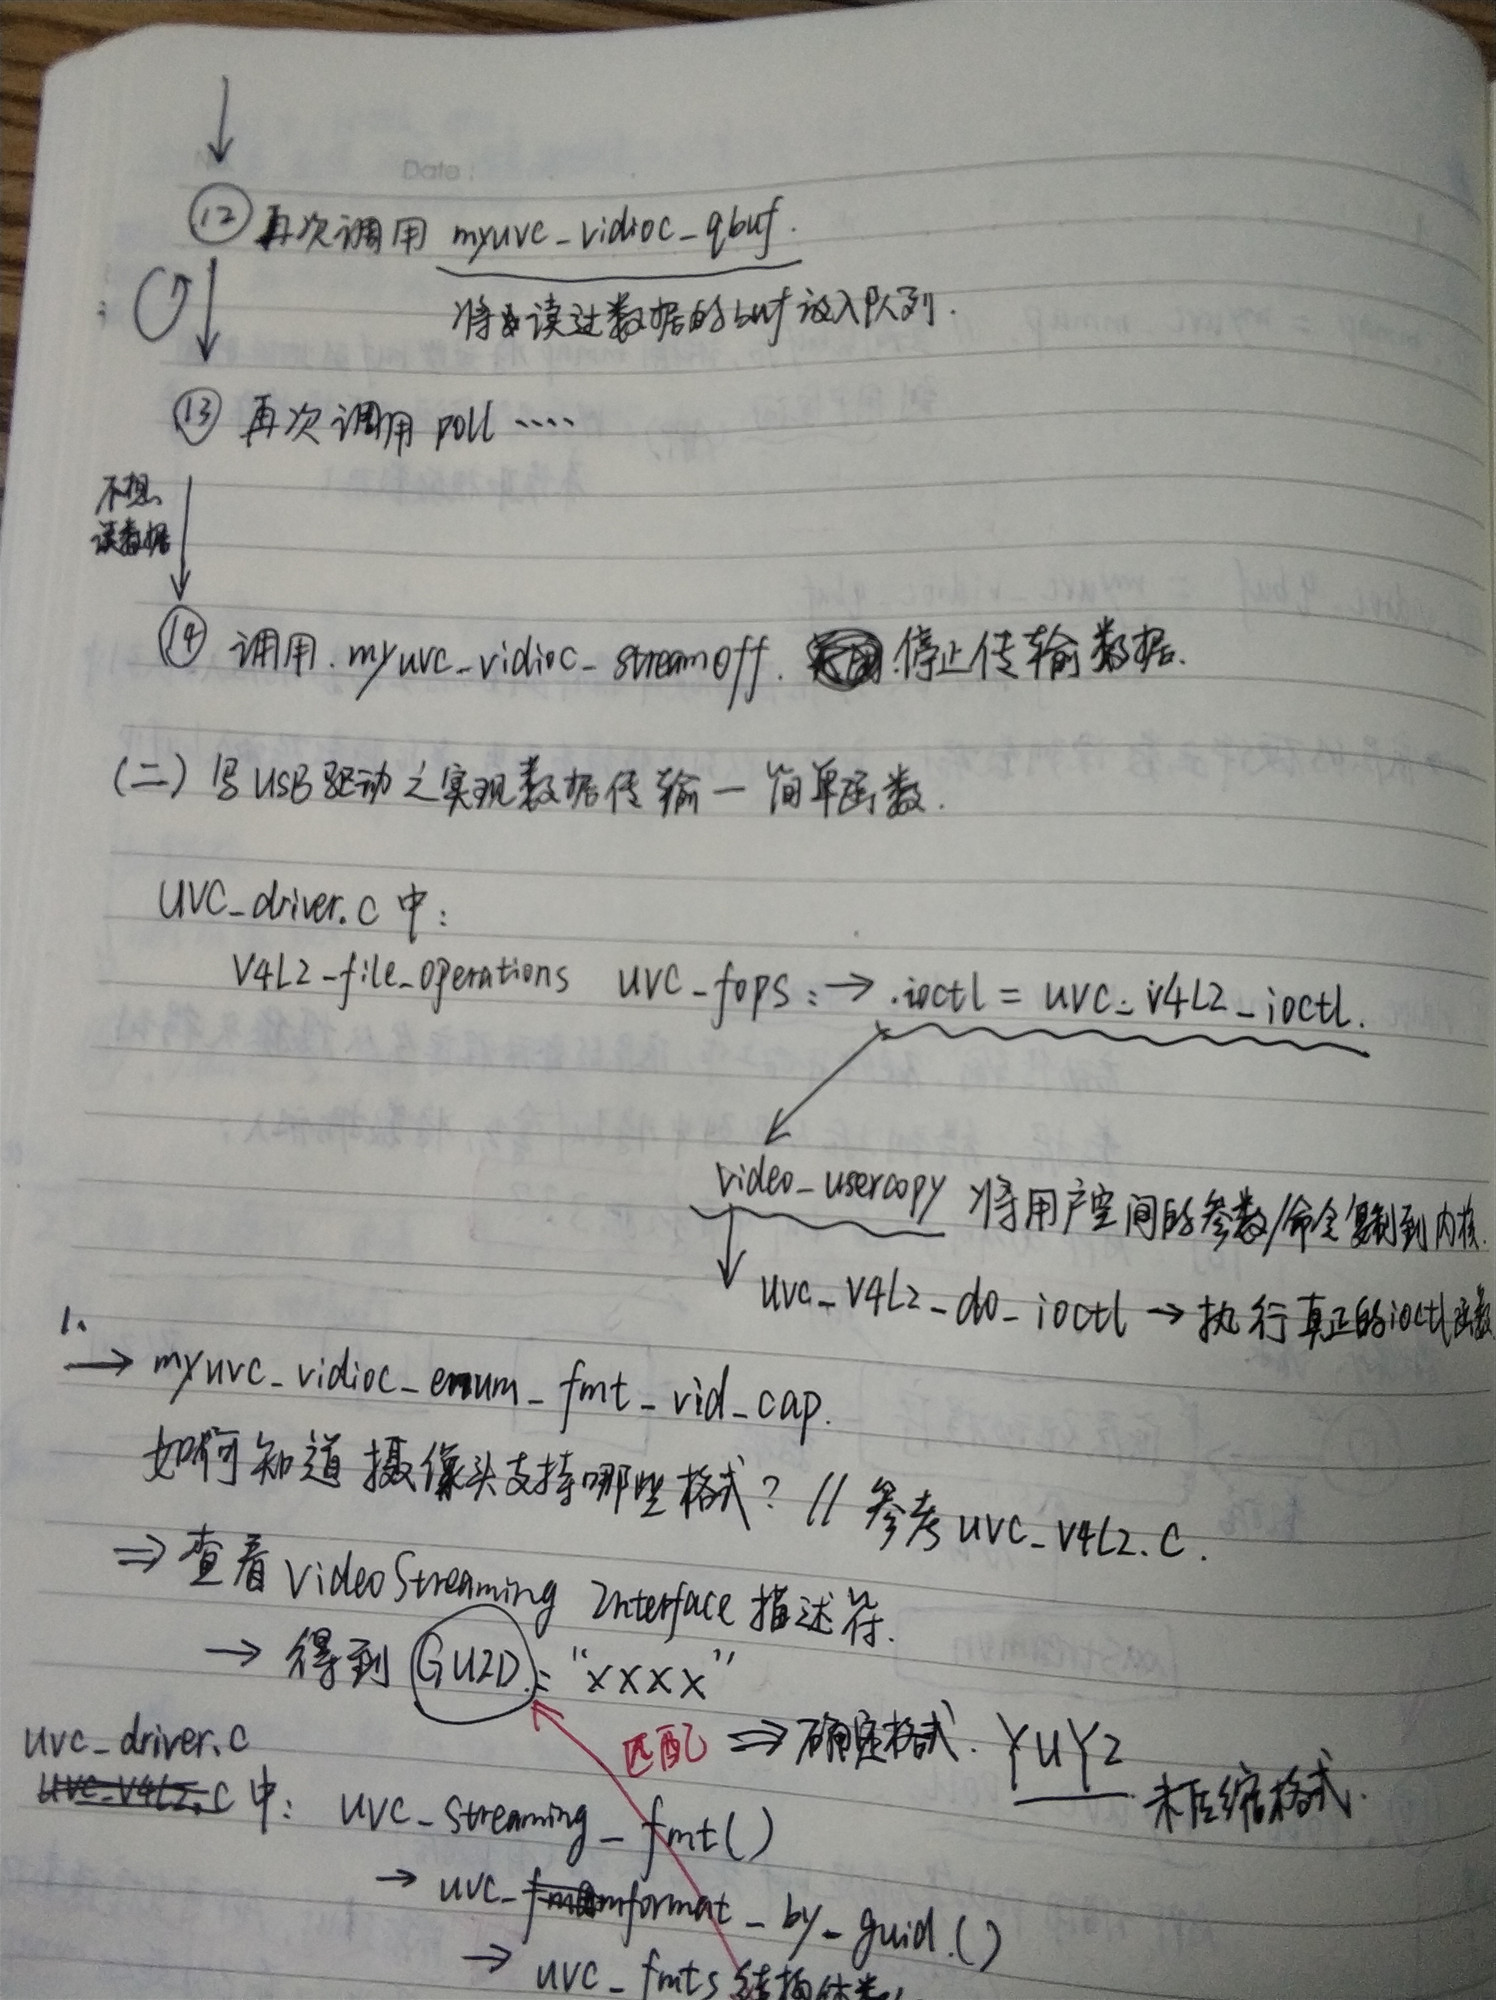 Date:
↓
⑫ 再次调用 myuvc_vidioc_qbuf.
将读过数据的buf放入队列.
⑬ 再次调用 poll ....
不想
读数据
⑭ 调用. myuvc_vidioc_streamoff. 停止传输数据.
(二) 写USB驱动之实现数据传输一简单函数.
UVC_driver.c 中:
V4L2_file_operations uvc_fops: → .ioctl = uvc_v4L2_ioctl.
video_usercopy 将用户空间的参数/命令复制到内核.
uvc_V4L2_do_ioctl → 执行真正的ioctl函数
1、
→ myuvc_vidioc_enum_fmt_vid_cap.
如何知道摄像头支持哪些格式? // 参考 uvc_v4L2.c.
⇒ 查看 VideoStreaming Interface 描述符.
→ 得到 GUID = "xxxx"
匹配 ⇒ 确定格式. YUY2 未压缩格式.
uvc_driver.c
uvc_v4L2.c 中: uvc_streaming_fmt()
→ uvc_format_by_guid.()
→ uvc_fmts 结构体